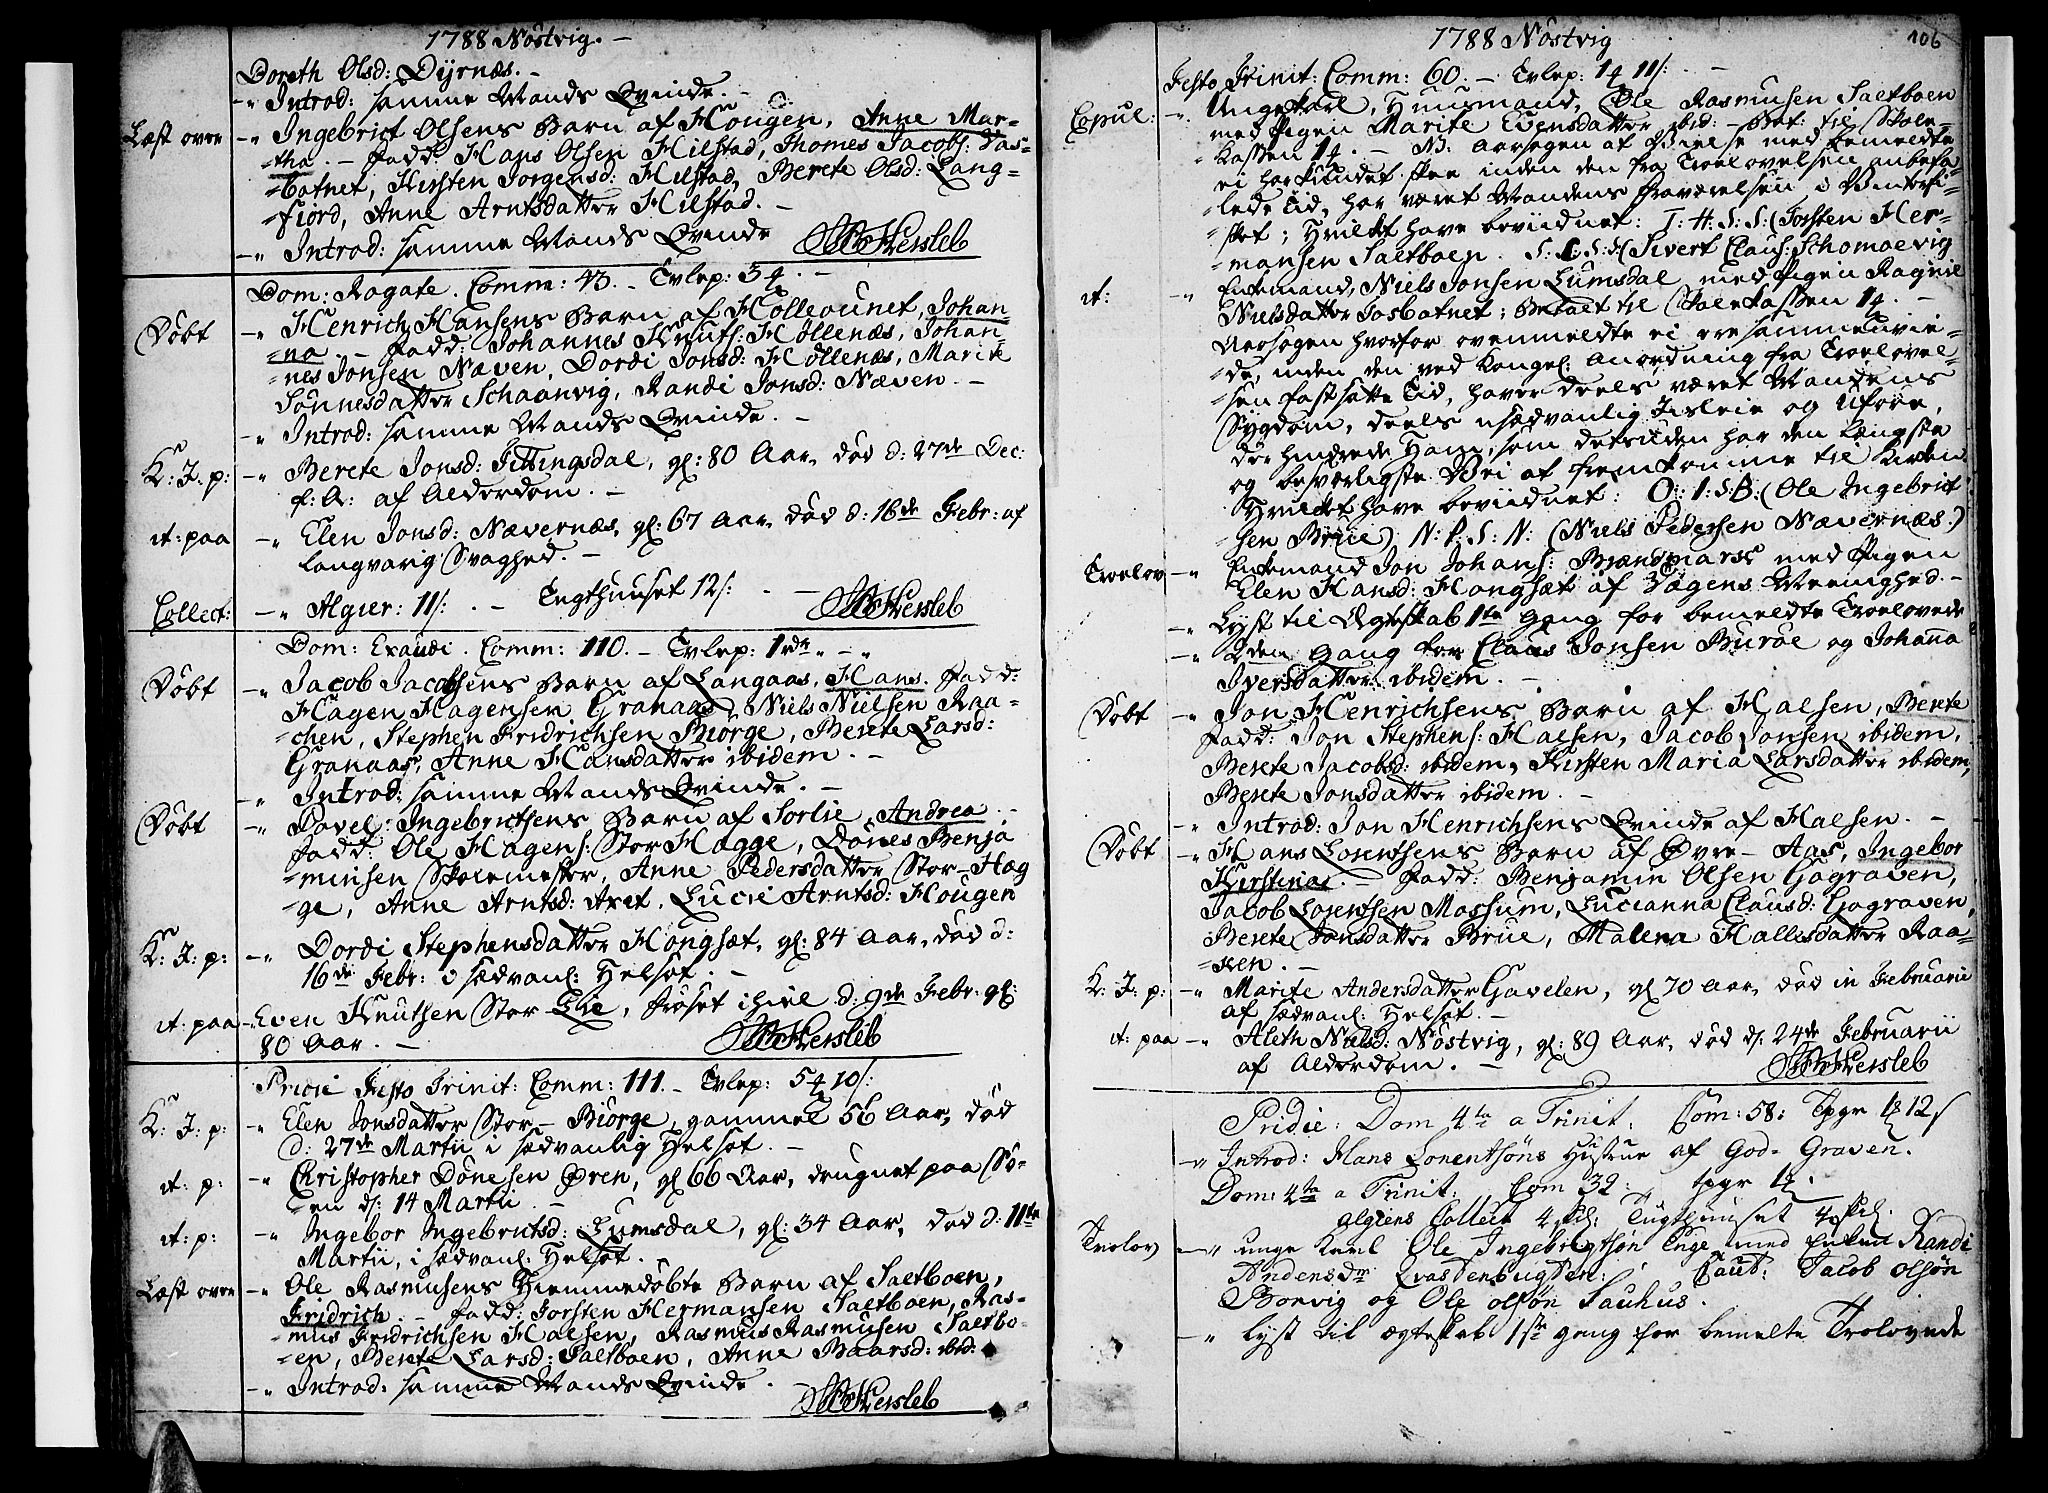 1788 Nöstvig. —
Doreth Olsd: Dyrnæs. —
-„ Introd: samme Mands Qvinde. —
Læst over -„ Ingebrict Olsens Barn af Hougen, Anne Mar-
-tha. — Fadd. Hans Olsen Hilstad, Thomes Jacobs: Vas-
-botnet, Kirsten Jorgensd: Hilstad, Berete Olsd: Lang-
-fiord, Anne Arntsdatter Hilstad. —
-„ Introd: samme Mands Qvinde Hersleb
Dom: Rogate. Comm: 43. — Tvlep: 3
Döbt -„ Henrich Hansens Barn af Holleounet, Johan-
-na. — Fadd: Johannes Knuts: Höllenæs, Johan-
-nes Jonsen Næven, Dordi Jonsd: Höllenæs, Marite
Tönnesdatter Schaanvig, Randi Jonsd: Næven. —
-„ Introd: samme Mands Qvinde. —
K: J: p: -„ Berete Jonsd: Fittingsdal, gl: 80 Aar, död d: 27de Dec:
f: A: af Alderdom. —
it: paa -„ Elen Jonsd: Nævernæs, gl: 67 Aar, död d: 16de Febr: af
langvarig Svaghed. —
Collect: -„ Algier: 11/: . — Tugthuuset 12/: . — Hersleb
Dom: Exaudi. Comm: 110. — Tvlep: 1rdr „ — „
Döbt -„ Jacob Jacobsens Barn af Langaas, Hans. Fadd:
Hagen Hagensen Granaas, Niels Nielsen Raa-
-chen, Stephen Fridrichsen Biörge, Berete Larsd:
Granaas, Anne Hansdatter ibidem. —
-„ Introd: samme Mands Qvinde. —
Döbt -„ Povel Ingebrictsens Barn af Sorlie, Andrea. —
Fadd: Ole Hagens: Stor Hagge, Dönes Benja
-minsen Skolemester, Anne Pedersdatter Stor-Hag
-ge, Anne Arntsd: Aret, Lucie Arntsd: Hougen
K: J: p: -„ Dordi Stephensdatter Hongsæt, gl: 84 Aar, död d:
16de Febr: i sædvanl: Helsot. —
it: paa -„ Even Knutsen Stor Lie, fröset ihiel d: 9de Febr: gl:
80 Aar. — Hersleb
Pridie Festo Trinit: Comm: 111. — Tvlep: 5 10/:
K: J: p: -„ Elen Jonsdatter Stor-Biörge, gammel 56 Aar, död
d: 27de Martii i sædvanlig Helsot. —
it: p: -„ Christopher Dönesen Oren, gl 66 Aar, drugnet paa Sö-
-en d: 14 Martii. —
it: p: -„ Ingebor Ingebrictsd: Lumsdal, gl: 34 Aar, död d: 11te
Martii, i sædvanl: Helsot.
Læst over -„ Ole Rasmusens Hiemmedöbte Barn af Saltboen,
Fridrich. — Fadd: Torsten Hermansen Saltboen, Ras-
-mus Fridrichsen Halsen, Rasmus Rasmusen Saltbo-
-en, Berete Larsd: Saltboen, Anne Baarsd: ibid:
-„ Introd: samme Mands Qvinde. Hersleb
1788 Nöstvig
106
Festo Trinit: Comm: 60. — Tvlep: 1 11/: . —
Copul: -„ Ungekarl, Huusmand, Ole Rasmusen Saltboen
med Pigen Marite Evensdatter ibid: — Bet: til Skole-
-kassen 1. — NB. Aarsagen at Vielse med bemeldte
ei har kundet skee inden den fra Troelovelsen anbefa
-lede Tid, har været Mandens fraværelsen i Vinterfi-
-sket; Hvilket have beviidnet: T. H. S. S. (Torsten Her-
-mansen Saltboen. S. C. S. S. (Sivert Claus: Schomaevig
it: -„ Enkemand, Niels Jonsen Lumsdal med Pigen Ragnil
Nielsdatter Vosbotnet; Betalt til Skolekassen 1. —
Aarsagen hvorfor ovenmeldte ei ere sammenvie-
-de, inden den ved Kongel: Anordning fra Troelovel-
-sen fastsatte Tid, haver deels været Mandens
Sygdom, deels usædvanlig Isleie og Uföre,
der hindrede Ham, som desuden har den længste
og besværligste Vei at fremkomme til Kirken.
Hvilket have beviidnet: O: I: S: B: (Ole Ingebrict
-sen Brue) N: P: S: N: (Niels Pedersen Nævernæs.)
Troelov -„ Enkemand Jon Johans: Brændmarsk med Pigen
Elen Hansd: Hongsæt af Vogens Meenighed. —
-„ Lyst til Ægteskab 1te Gang for bemeldte Troelovede
-„ 2den Gang for Claus Jonsen Buröe og Johanna
Iversdatter ibidem. —
Döbt -„ Jon Henrichsens Barn af Halsen, Berete
Fadd: Jon Stephens: Halsen, Jacob Jonsen ibidem,
Berete Jacobsd: ibidem, Kirsten Maria Larsdatter ibidem,
Berete Jonsdatter ibidem. —
-„ Introd: Jon Henrichsens Qvinde af Halsen. —
Döbt -„ Hans Lorentsens Barn af Øvre-Aas, Ingebor
Kirstina. — Fadd: Benjamin Olsen Gograven,
Jacob Lorentsen Mossum, Lucianna Clausd: Gograven,
Berete Jonsdatter Brüe, Malena Hallesdatter Raa-
-ken. —
K: J: p: -„ Marite Andersdatter Gavelen, gl 70 Aar, död in Februarii
af sædvanl: Helsot. —
it: paa -„ Aleth Nielsd: Nöstvig, gl: 89 Aar, död d: 24de Februarii
af Alderdom. — Hersleb
Pridie: Dom 4ta a Trinit: Com: 58: Tpgr 1 12/
-„ Introd: Hans Lorentsöns Hustrue af God-Graven.
Dom: 4ta a Trinit: Com 32: tpgr 1.
algiens Collect 4 sk: Tugthuuset 4 skil.
Trolov -„ unge Karl Ole Ingebrigtsön Tuge med Enken Randi
Andersdr : Caut: Jacob olsön
Borvig og Ole olsön Sauhus.
-„ lyst til ægteskab 1ste gang for bemelte Trolovede